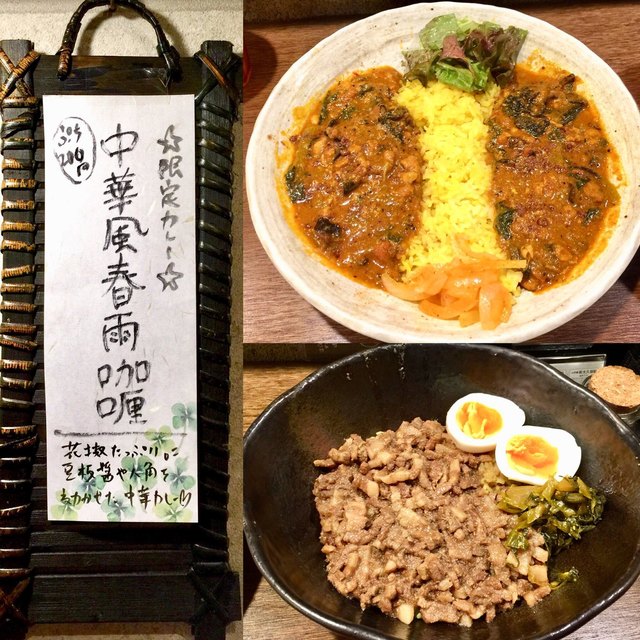 ☆限定カレー☆
中華風春雨咖喱
花椒たっぷり。に
豆板醤や八角を
きかせた中華カレー♡